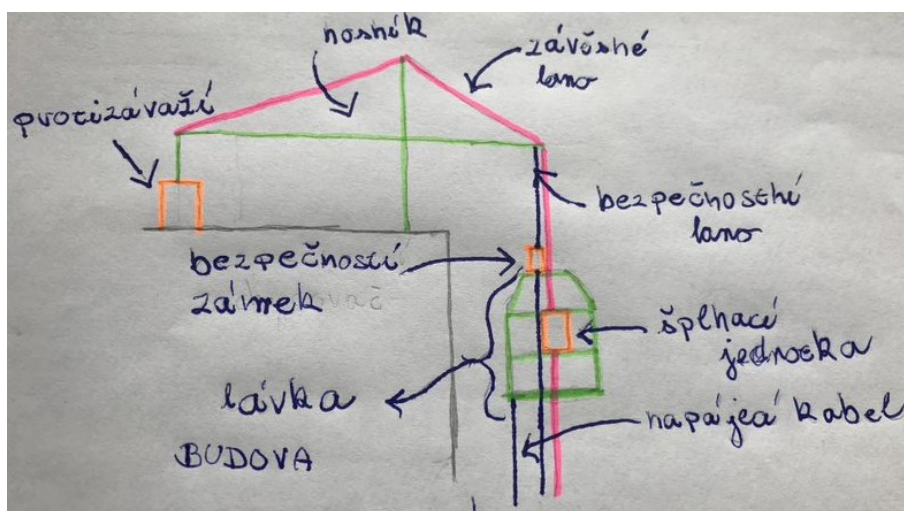 nosník
závěsné
lano
protizávaží
bezpečnosthí
lano
bezpečností
zámek
šplhací
jednotka
lávka
napájeá kabel
BUDOVA